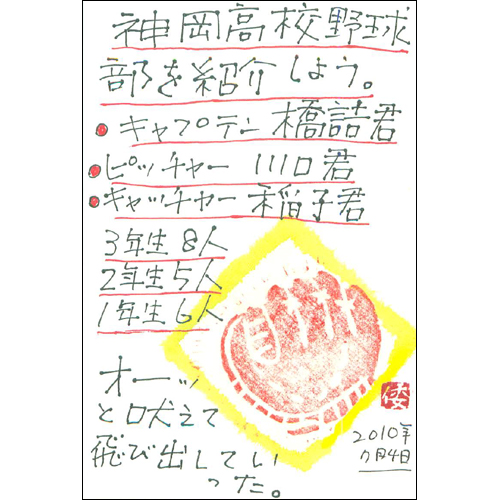 神岡高校野球
部を紹介しよう。
キャプテン 橋詰君
ピッチャー 川口君
キャッチャー 稲子君
3年生8人
2年生5人
1年生6人
オーッ
と吠えて
飛び出してい
った。
倭
2010年
7月4日